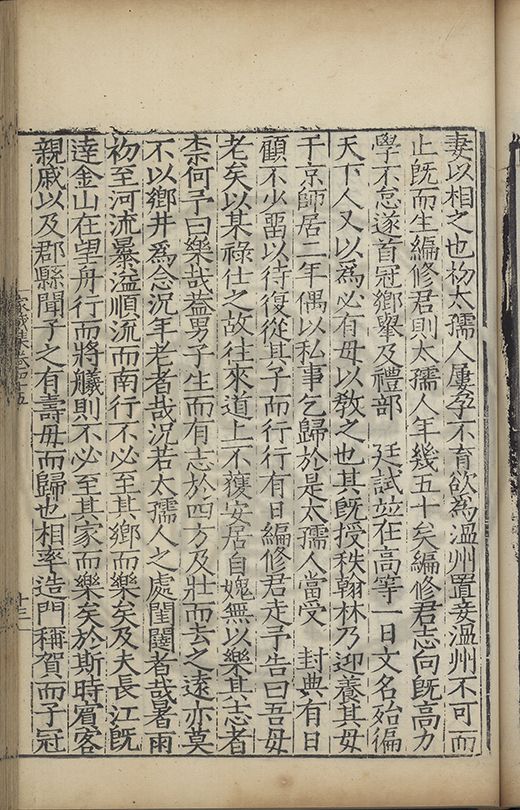 妻以相之也初太孺人屢孕不育欲為温州置妾温州不可而
止既而生編修君則太孺人年幾五十矣編修君志向既高力
學不怠遂首冠鄉舉及禮部 廷試竝在髙等一日文名始徧
天下人又以為必有母以敎之也其既授秩翰林乃迎養其母
于京師居二年偶以私事乞歸於是太孺人當受 封典有日
顧不少留以待復從其子而行行有日編修君走予告曰吾母
老矣以某祿仕之故往來道上不獲安居自媿無以樂其志者
柰何予曰樂哉蓋男子生而有志於四方及壯而去之遠亦莫
不以鄉井為念况年老者哉况若太孺人之處閨闥者哉暑雨
初至河流暴溢順流而南行不必至其鄉而樂矣及夫長江既
達金山在望舟行而將艤則不必至其家而樂矣於斯時賓客
親戚以及郡縣聞子之有壽母而歸也相率造門稱賀而子冠
家藏集卷四十五
十三